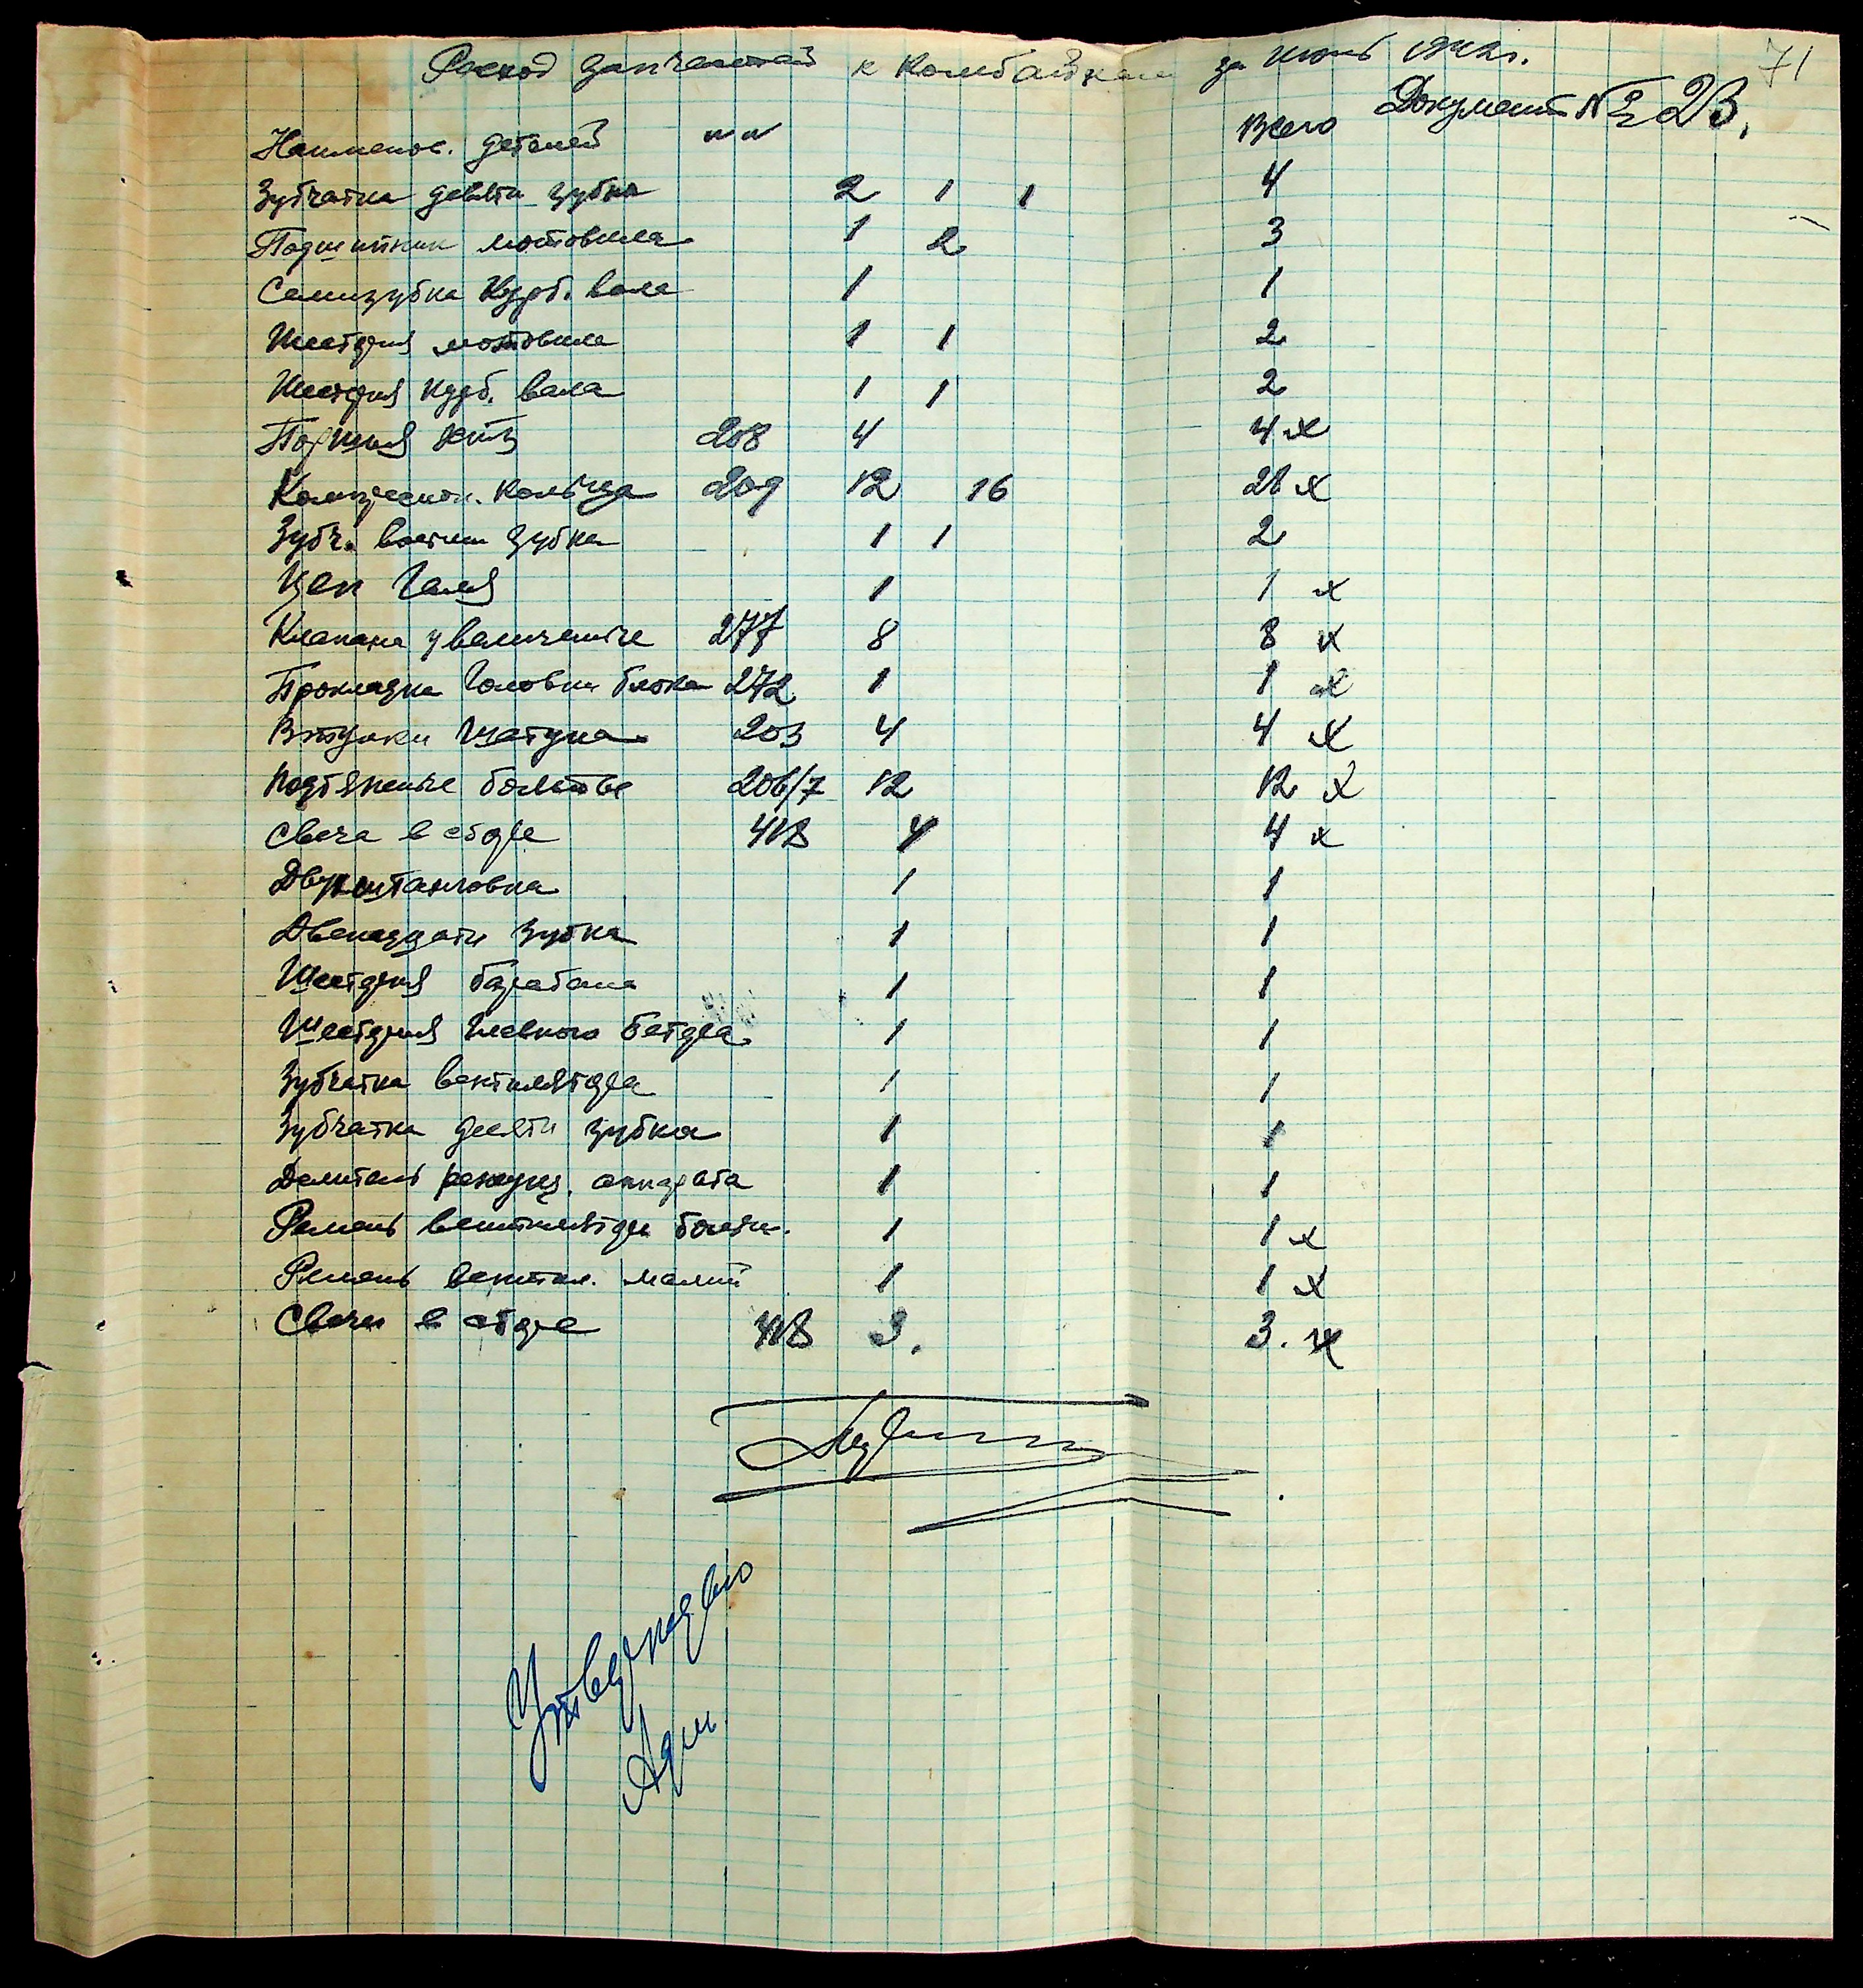 71
Расход запчастей к комбайнам за июнь 1942г.
Документ № 23.
Наименов. деталей " " Всего
Зубчатка девяти зубка 2 1 1 4
Подшипник мотовила 1 2 3
Семизубка Курб. вала 1 1
Шестерня мотовила 1 1 2
Шестерня курб. вала 1 1 2
Поршня хтз 208 4 4 х
Компрессион. кольца 209 12 16 28 х
Зубч. восьми зубка 1 1 2
Цеп Галя 1 1 х
Клапана увеличеные 277 8 8 х
Прокладка Головки блока 272 1 1 х
Втулки Шатуна 203 4 4 х
Подтяжные болты 206/7 12 12 х
Свеча в сборе 418 4 4 х
Двухштанговка 1 1
Двенадцати зубка 1 1
Шестерня барабана 1 1
Шестерня Главного битера 1 1
Зубчатка вентилятора 1 1
Зубчатка десяти зубка 1 1
Делитель режущ. аппарата 1 1
Ремень вентилятора больш. 1 1 х
Ремень вентил. малый 1 1 х
Свечи в сборе 418 3. 3. х
Утверждаю